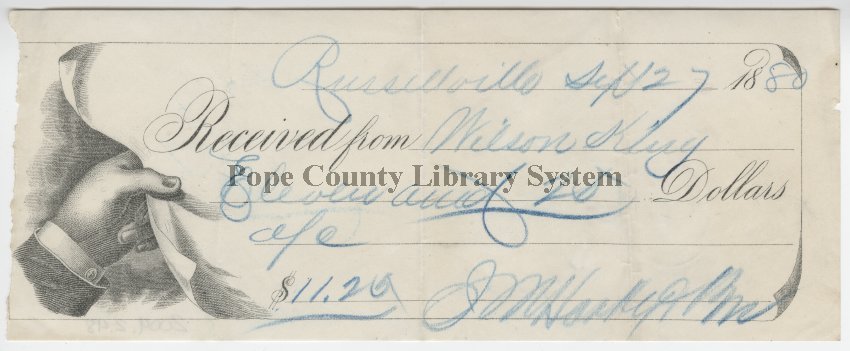 Russellville Sept 27 1880
Received from Wilson King
Pope County Library System
Eleven and 20 Dollars
a/c
$11.20